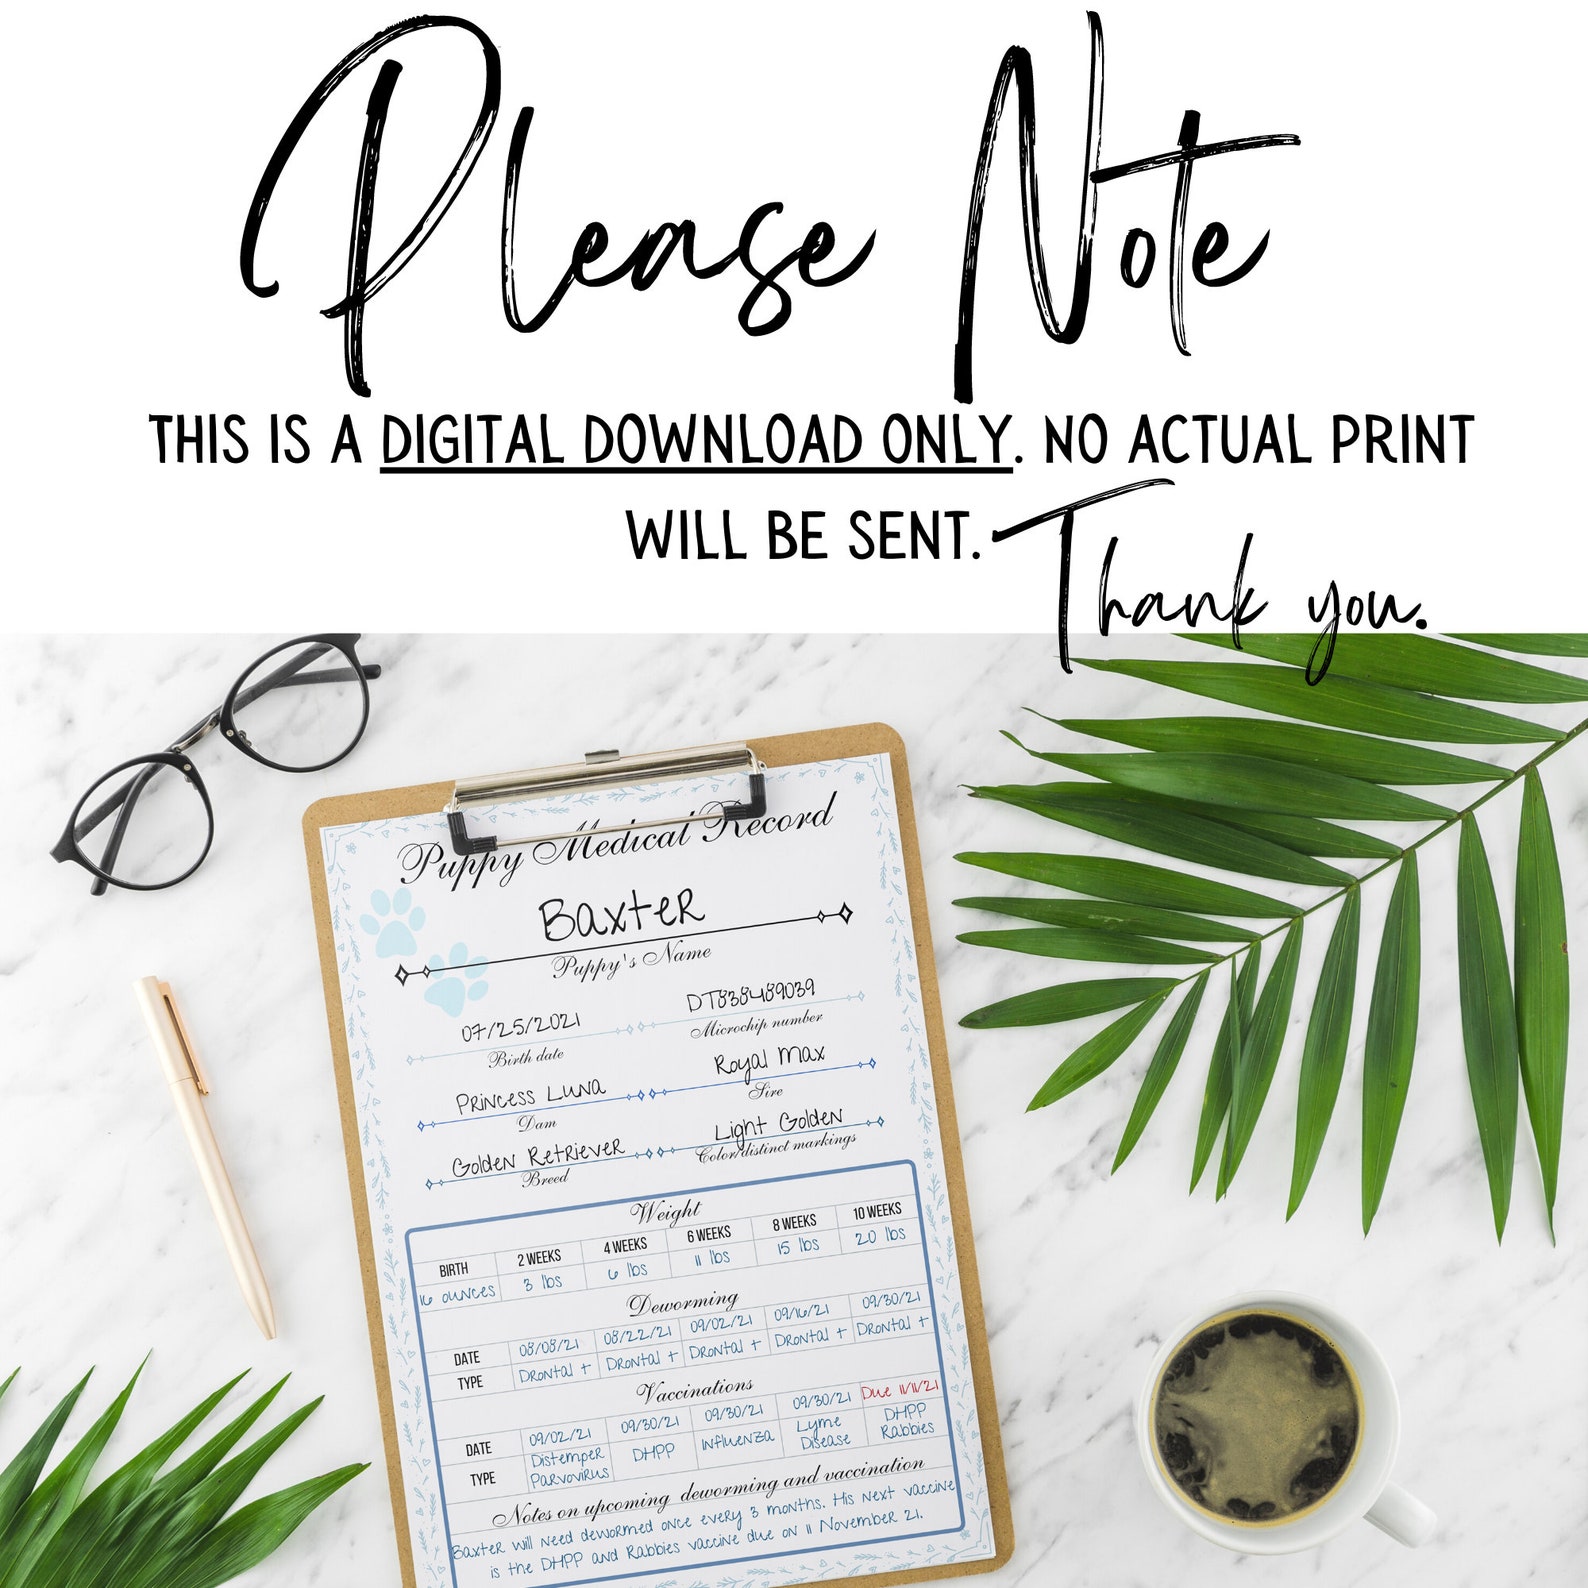 Please Note
THIS IS A DIGITAL DOWNLOAD ONLY. NO ACTUAL PRINT
WILL BE SENT. Thank you.
Puppy Medical Record
Baxter
Puppy's Name
07/25/2021 DT838489039
Birth date Microchip number
Princess Luna Royal Max
Dam Sire
Golden Retriever Light Golden
Breed Color/distinct markings
Weight
BIRTH 2 WEEKS 4 WEEKS 6 WEEKS 8 WEEKS 10 WEEKS
16 ounces 3 lbs 6 lbs 11 lbs 15 lbs 20 lbs
Deworming
DATE 08/08/21 08/22/21 09/02/21 09/16/21 09/30/21
TYPE Drontal + Drontal + Drontal + Drontal + Drontal +
Vaccinations
DATE 09/02/21 09/30/21 09/30/21 09/30/21 Due 11/11/21
TYPE Distemper Parvovirus DHPP Influenza Lyme Disease DHPP Rabbies
Notes on upcoming deworming and vaccination
Baxter will need dewormed once every 3 months. His next vaccine
is the DHPP and Rabbies vaccine due on 11 November 21.